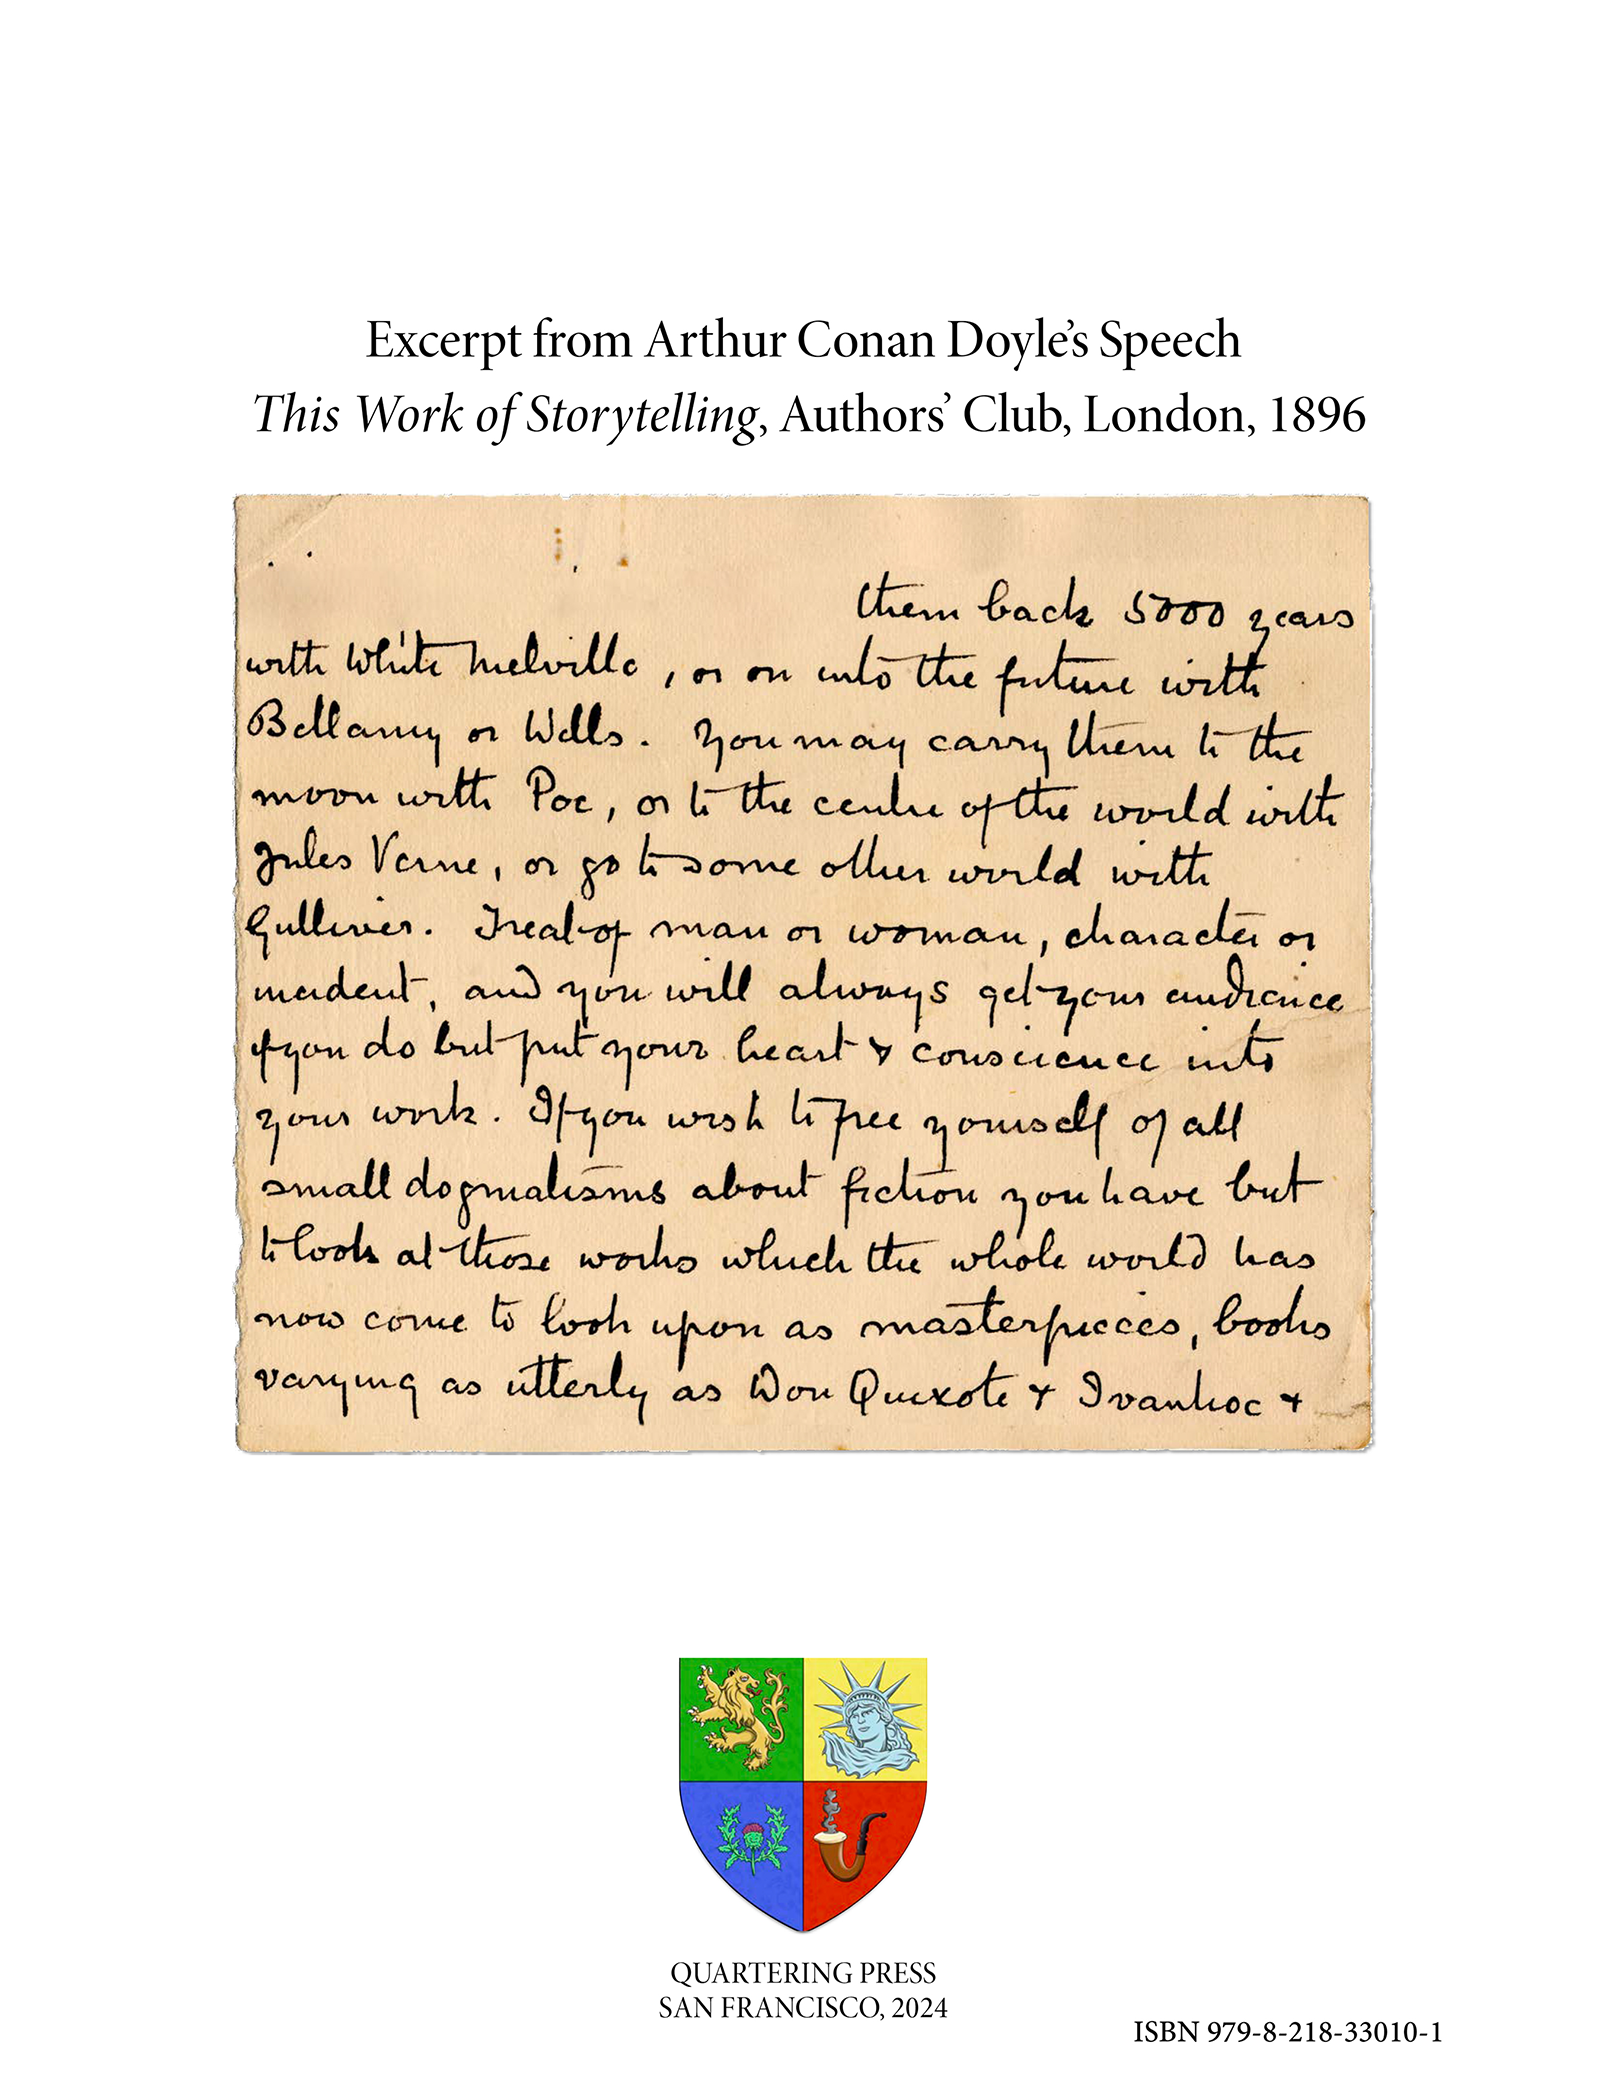 Excerpt from Arthur Conan Doyle’s Speech
This Work of Storytelling, Authors’ Club, London, 1896
them back 5000 years
with Whyte Melville, or on into the future with
Bellamy or Wells. You may carry them to the
moon with Poe, or to the centre of the world with
Jules Verne, or go to some other world with
Gulliver. Treat of man or woman, character or
incident, and you will always get your audience
if you do but put your heart & conscience into
your work. If you wish to free yourself of all
small dogmatisms about fiction you have but
to look at those works which the whole world has
now come to look upon as masterpieces, books
varying as utterly as Don Quixote & Ivanhoe &
QUARTERING PRESS
SAN FRANCISCO, 2024
ISBN 979-8-218-33010-1